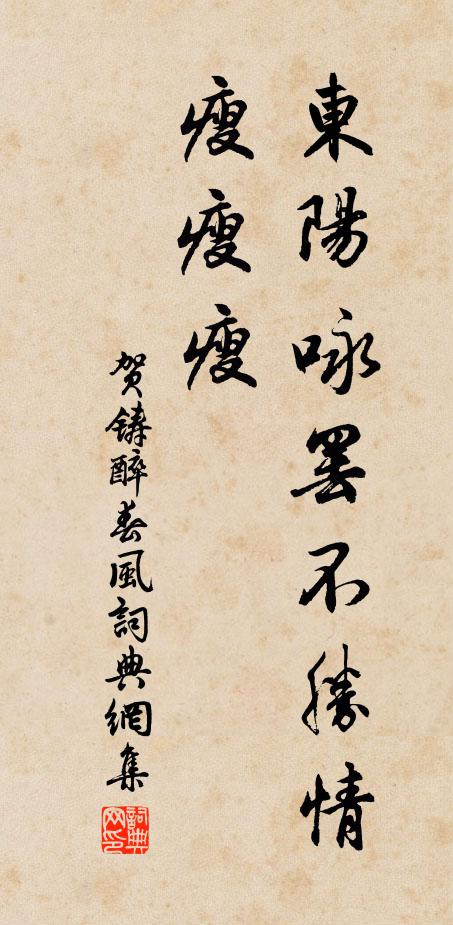 東陽咏罷不勝情
瘦瘦瘦
贺鑄醉春風詞典網集
詞典网印